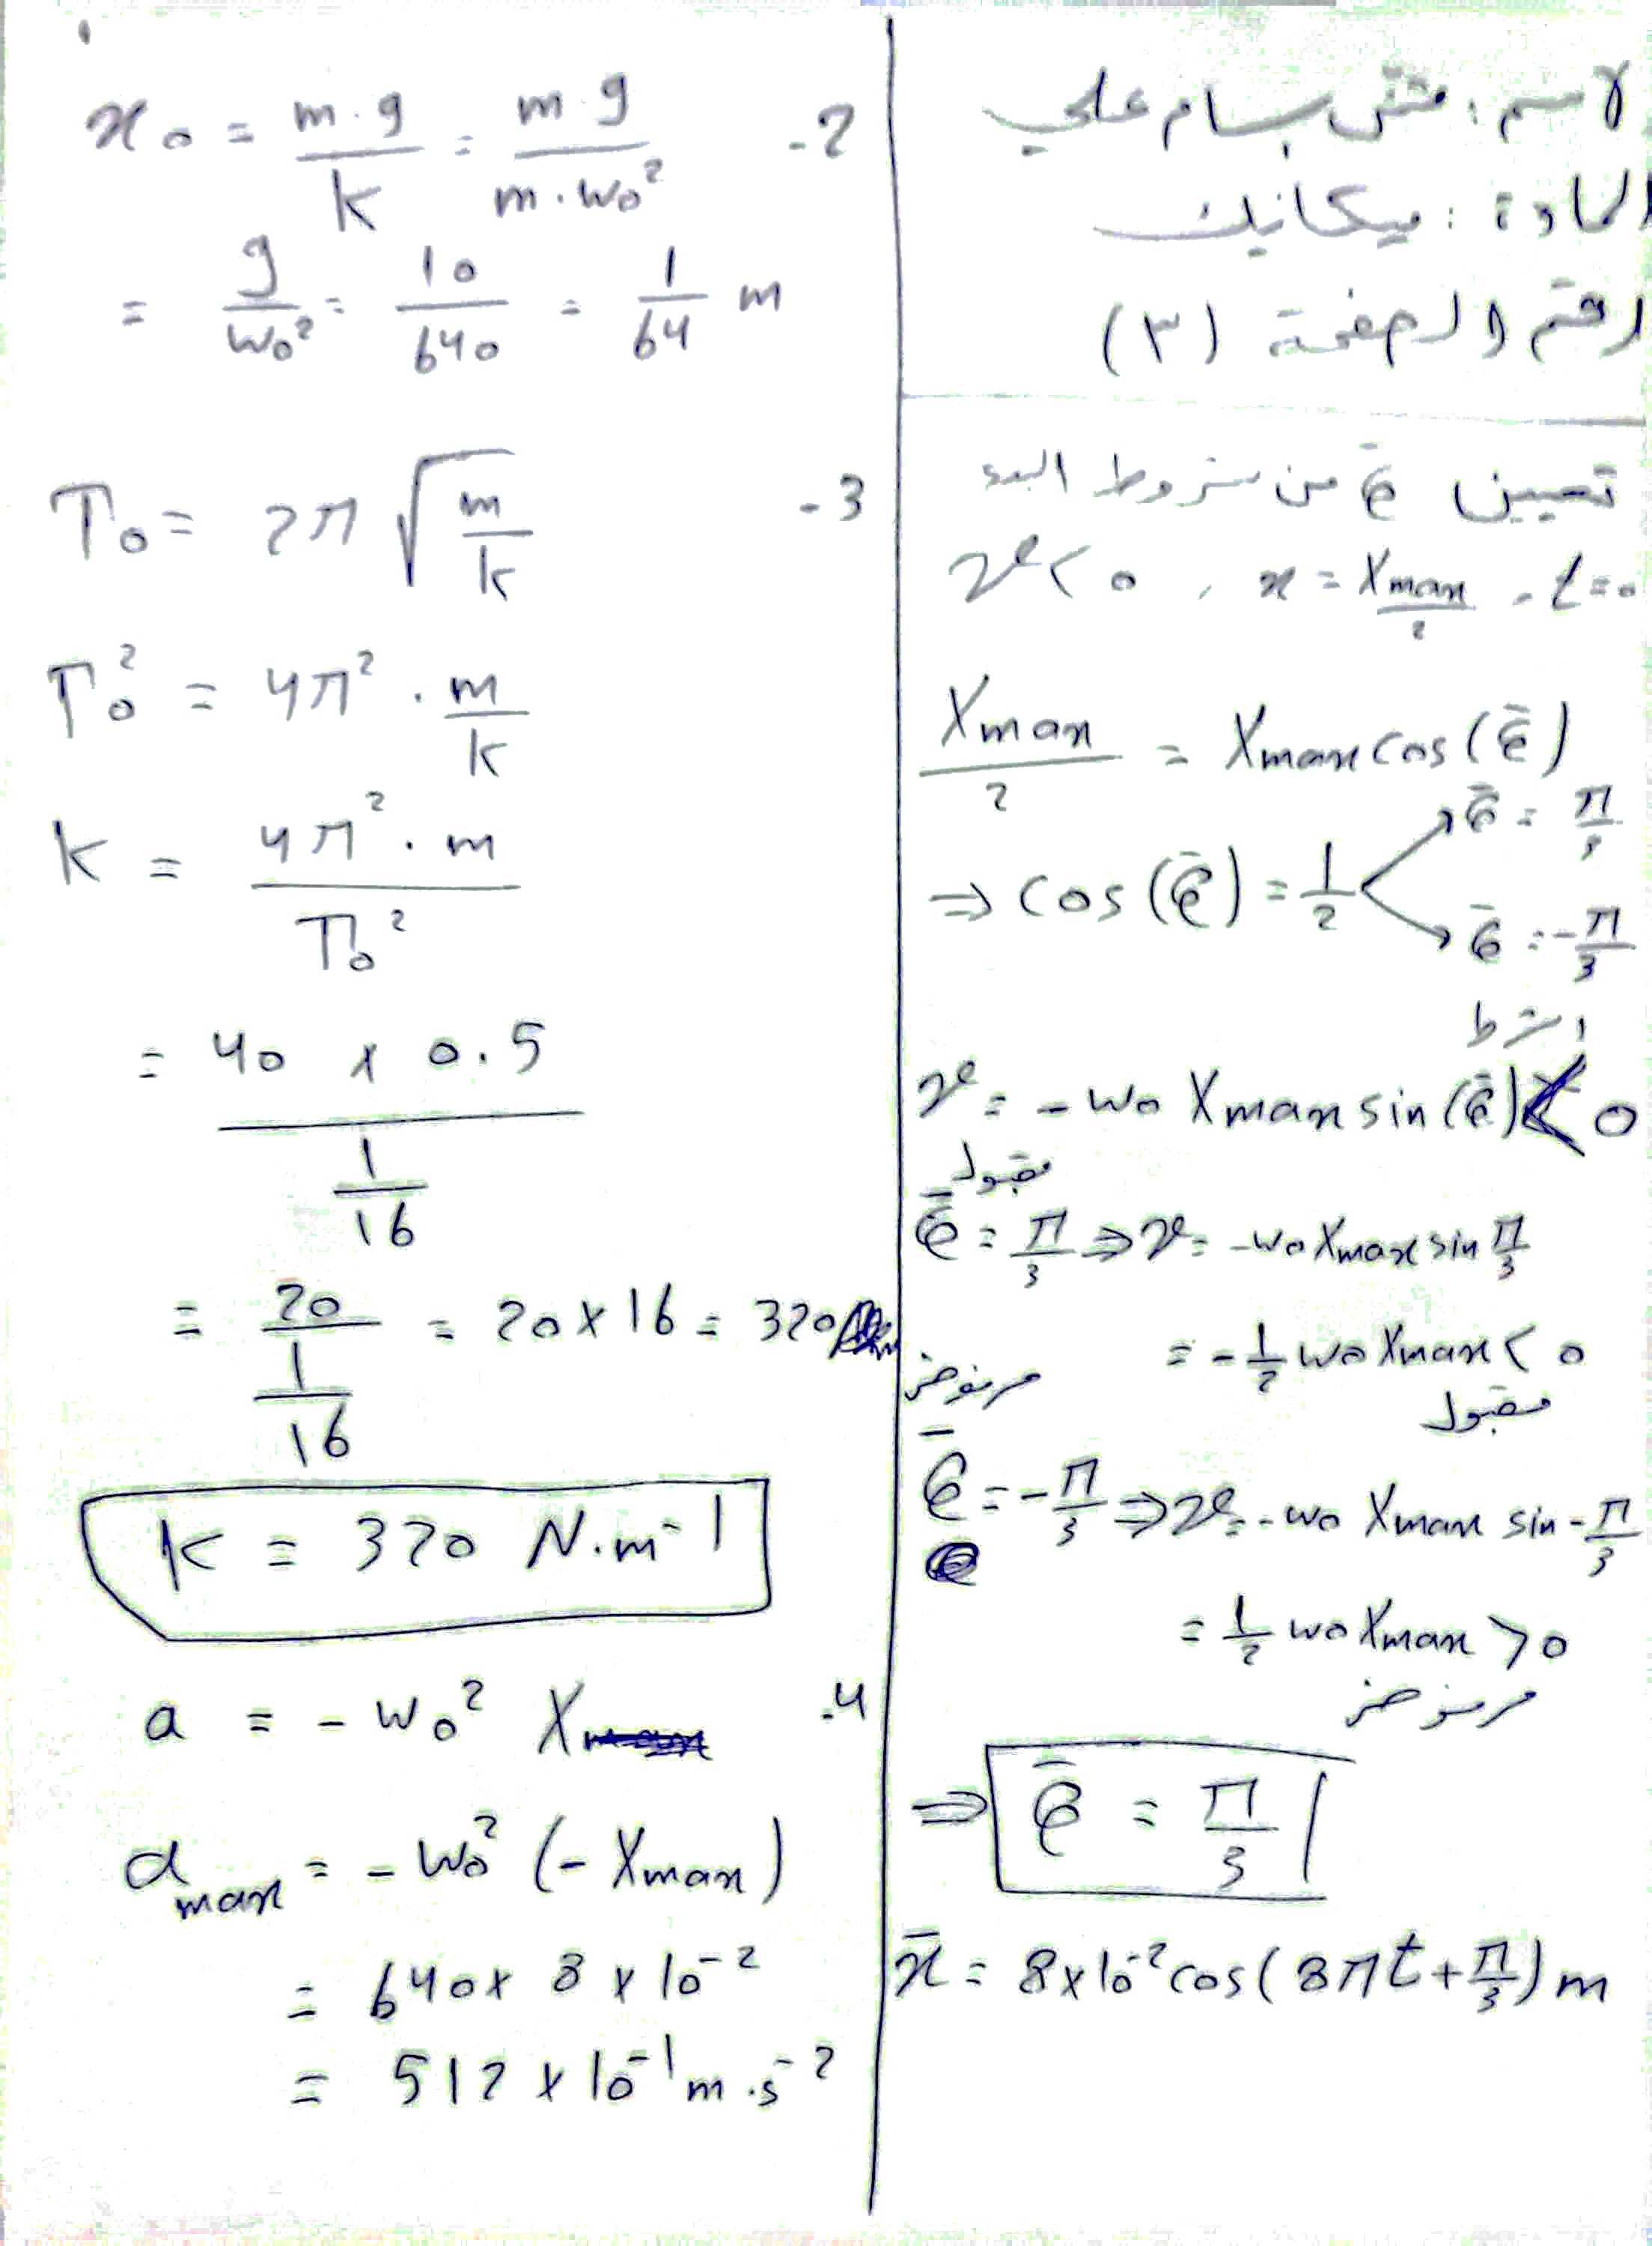 الاسم: مثنى بسام علي
المادة: ميكانيك
رقم الصفحة (٣)
تعيين φ̄ من شروط البدء
t=0 , x = Xmax/2 , v < 0
Xmax/2 = Xmax cos(φ̄)
⇒ cos(φ̄) = 1/2
φ̄ = π/3
φ̄ = -π/3
شرط
v = -ω0 Xmax sin(φ̄) < 0
مقبول
φ̄ = π/3 ⇒ v = -ω0 Xmax sin π/3
= -1/2 ω0 Xmax < 0
مقبول
مرفوض
φ̄ = -π/3 ⇒ v = -ω0 Xmax sin -π/3
= 1/2 ω0 Xmax > 0
مرفوض
⇒ φ̄ = π/3
x̄ = 8x10^-2 cos(8πt + π/3) m
2- x0 = m.g/k = m.g/m.ω0²
= g/ω0² = 10/640 = 1/64 m
3- T0 = 2π √(m/k)
T0² = 4π² . m/k
k = 4π² . m/T0²
= 40 x 0.5/(1/16)
= 20/(1/16) = 20 x 16 = 320
k = 320 N.m^-1
4- a = -ω0² X
amax = -ω0² (-Xmax)
= 640 x 8 x 10^-2
= 512 x 10^-1 m.s^-2